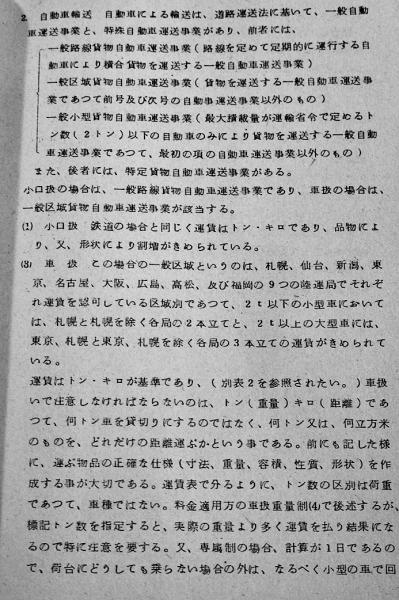 2. 自動車輸送　自動車による輸送は、道路運送法に基いて、一般自
動車運送事業と、特殊自動車運送事業があり、前者には、
一般路線貨物自動車運送事業(路線を定めて定期的に運行する自
動車により積合貨物を運送する一般自動車運送事業)
一般区域貨物自動車運送事業(貨物を運送する一般自動車運送事
業であつて前号及び次号の自動車運送事業以外のもの)
一般小型貨物自動車運送事業(最大積載量が運輸省令で定めるト
ン数(2トン)以下の自動車のみにより貨物を運送する一般自動
車運送事業であつて、最初の項の自動車運送事業以外のもの)
また、後者には、特定貨物自動車運送事業がある。
小口扱の場合は、一般路線貨物自動車運送事業であり、車扱の場合は、
一般区域貨物自動車運送事業が該当する。
(1) 小口扱　鉄道の場合と同じく運賃はトン・キロであり、品物によ
り、又、形状により割増がきめられている。
(3) 車　扱　この場合の一般区域というのは、札幌、仙台、新潟、東
京、名古屋、大阪、広島、高松、及び福岡の9つの陸運局でそれぞ
れ運賃を認可している区域別であつて、2t以下の小型車において
は、札幌と札幌を除く各局の2本立てと、2t以上の大型車には、
東京、札幌と東京、札幌を除く各局の3本立ての運賃がきめられて
いる。
運賃はトン・キロが基準であり、(別表2を参照されたい。)車扱
いで注意しなければならないのは、トン(重量)キロ(距離)であ
つて、何トン車を貸切りにするのではなく、何トン又は、何立方米
のものを、どれだけの距離運ぶかという事である。前にも記した様
に、運ぶ物品の正確な仕様(寸法、重量、容積、性質、形状)を作
成する事が大切である。運賃表で分るように、トン数の区別は荷重
であつて、車種ではない。料金適用方の車扱重量制(4)で後述するが、
標記トン数を指定すると、実際の重量より多く運賃を払う結果にな
るので特に注意を要する。又、専属制の場合、計算が1日であるの
で、荷台にどうしても乗らない場合の外は、なるべく小型の車で回